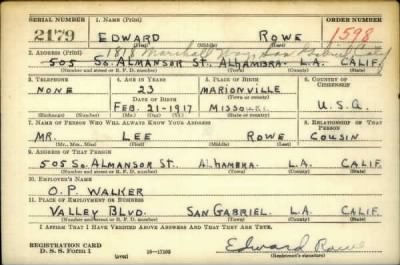 SERIAL NUMBER 1. NAME (Print) ORDER NUMBER
2179 EDWARD ROWE 1598
(First) (Middle) (Last)
2. ADDRESS (Print) 1818 Marshall Way, San Gabriel, Calif
505 So. ALMANSOR ST., ALHAMBRA. L.A. CALIF.
(Number and street or R. F. D. number) (Town) (County) (State)
3. TELEPHONE 4. AGE IN YEARS 5. PLACE OF BIRTH 6. COUNTRY OF CITIZENSHIP
NONE 23 MARIONVILLE
DATE OF BIRTH (Town or county)
FEB. 21-1917 MISSOURI U.S.A.
(Exchange) (Number) (Mo.) (Day) (Yr.) (State or country)
7. NAME OF PERSON WHO WILL ALWAYS KNOW YOUR ADDRESS 8. RELATIONSHIP OF THAT PERSON
MR. LEE ROWE COUSIN
(Mr., Mrs., Miss) (First) (Middle) (Last)
9. ADDRESS OF THAT PERSON
505 So. ALMANSOR ST., ALHAMBRA L.A. CALIF
(Number and street or R. F. D. number) (Town) (County) (State)
10. EMPLOYER'S NAME
O.P. WALKER
11. PLACE OF EMPLOYMENT OR BUSINESS
VALLEY BLVD. SAN GABRIEL. L.A. CALIF.
(Number and street or R. F. D. number) (Town) (County) (State)
I AFFIRM THAT I HAVE VERIFIED ABOVE ANSWERS AND THAT THEY ARE TRUE.
REGISTRATION CARD
D. S. S. Form 1 (over) 16-17105 Edward Rowe
(Registrant's signature)